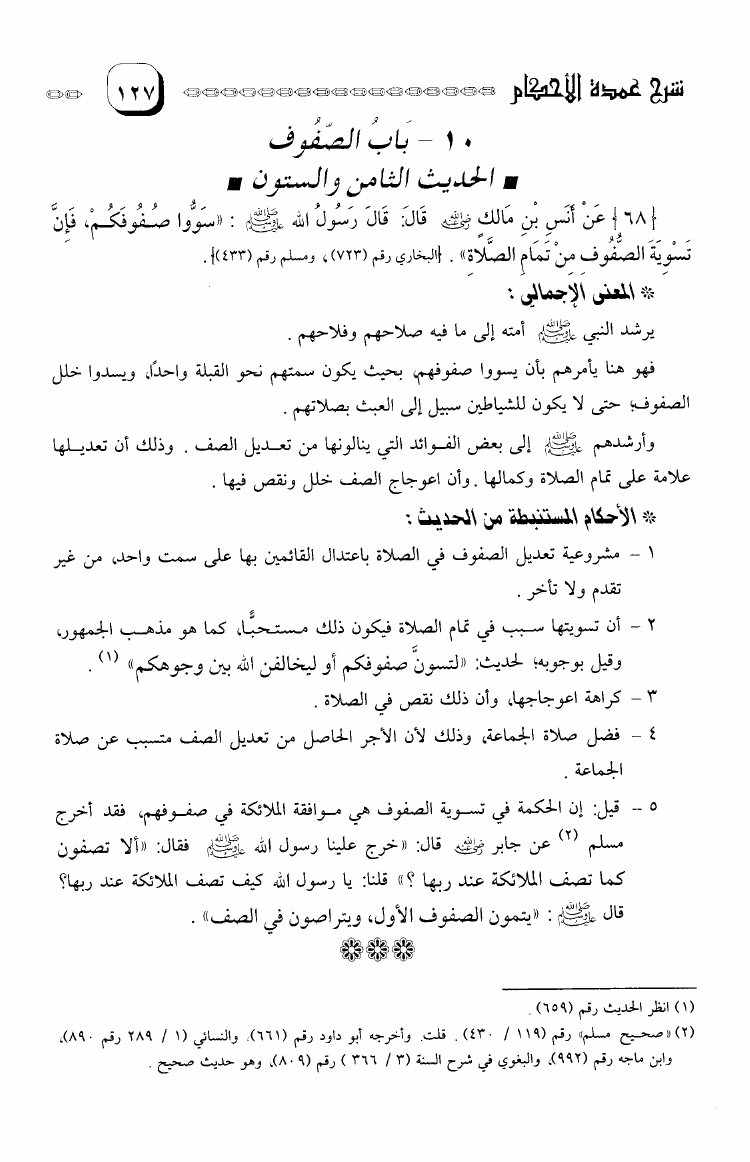 شرح عمدة الأحكام ١٢٧
١٠ - بَابُ الصّفُوف
■ الحديث الثامن والستون ■
{٦٨} عَنْ أَنَسِ بْنِ مَالكٍ رضي الله عنه قَالَ: قَالَ رَسُولُ الله ﷺ : «سَوُّوا صُفُوفَكُمْ، فَإِنَّ
تَسْوِيَةَ الصُّفُوف مِنْ تَمَامِ الصَّلَاة» . {البخاري رقم (٧٢٣)، ومسلم رقم (٤٣٣)}.
* المعنى الإجمالي :
يرشد النبي ﷺ أمته إلى ما فيه صلاحهم وفلاحهم .
فهو هنا يأمرهم بأن يسووا صفوفهم، بحيث يكون سمتهم نحو القبلة واحدًا، ويسدوا خلل
الصفوف؛ حتى لا يكون للشياطين سبيل إلى العبث بصلاتهم .
وأرشدهم ﷺ إلى بعض الفوائد التي ينالونها من تعديل الصف . وذلك أن تعديلها
علامة على تمام الصلاة وكمالها . وأن اعوجاج الصف خلل ونقص فيها .
* الأحكام المستنبطة من الحديث :
١ - مشروعية تعديل الصفوف في الصلاة باعتدال القائمين بها على سمت واحد، من غير
تقدم ولا تأخر .
٢ - أن تسويتها سبب في تمام الصلاة فيكون ذلك مستحبًّا، كما هو مذهب الجمهور،
وقيل بوجوبه؛ لحديث: «لتسونَّ صفوفكم أو ليخالفن الله بين وجوهكم» (١) .
٣ - كراهة اعوجاجها، وأن ذلك نقص في الصلاة .
٤ - فضل صلاة الجماعة، وذلك لأن الأجر الحاصل من تعديل الصف متسبب عن صلاة
الجماعة .
٥ - قيل: إن الحكمة في تسوية الصفوف هي موافقة الملائكة في صفوفهم، فقد أخرج
مسلم (٢) عن جابر رضي الله عنه قال: «خرج علينا رسول الله ﷺ فقال: «ألا تصفون
كما تصف الملائكة عند ربها ؟» قلنا: يا رسول الله كيف تصف الملائكة عند ربها؟
قال ﷺ : «يتمون الصفوف الأول، ويتراصون في الصف» .
(١) انظر الحديث رقم (٦٥٩) .
(٢) «صحيح مسلم» رقم (١١٩ / ٤٣٠) . قلت. وأخرجه أبو داود رقم (٦٦١)، والنسائي (١ / ٢٨٩ رقم ٨٩٠)،
وابن ماجه رقم (٩٩٢)، والبغوي في شرح السنة (٣ / ٣٦٦ ) رقم (٨٠٩)، وهو حديث صحيح .